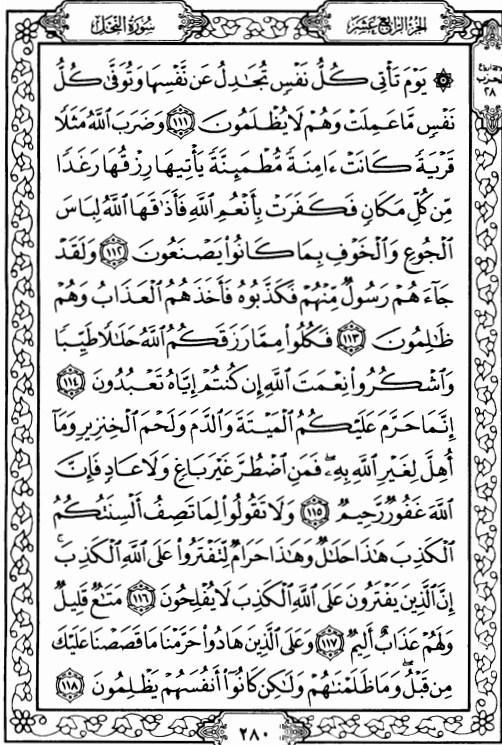 سُورَةُ النَّحْلِ
الجُزْءُ الرَّابِعُ عَشَرَ
۞ يَوْمَ تَأْتِي كُلُّ نَفْسٍ تُجَٰدِلُ عَن نَّفْسِهَا وَتُوَفَّىٰ كُلُّ
نَفْسٍ مَّا عَمِلَتْ وَهُمْ لَا يُظْلَمُونَ ١١١ وَضَرَبَ اللَّهُ مَثَلًا
قَرْيَةً كَانَتْ ءَامِنَةً مُّطْمَئِنَّةً يَأْتِيهَا رِزْقُهَا رَغَدًا
مِّن كُلِّ مَكَانٍ فَكَفَرَتْ بِأَنْعُمِ اللَّهِ فَأَذَٰقَهَا اللَّهُ لِبَاسَ
الْجُوعِ وَالْخَوْفِ بِمَا كَانُوا۟ يَصْنَعُونَ ١١٢ وَلَقَدْ
جَآءَهُمْ رَسُولٌ مِّنْهُمْ فَكَذَّبُوهُ فَأَخَذَهُمُ الْعَذَابُ وَهُمْ
ظَٰلِمُونَ ١١٣ فَكُلُوا۟ مِمَّا رَزَقَكُمُ اللَّهُ حَلَٰلًا طَيِّبًا
وَاشْكُرُوا۟ نِعْمَتَ اللَّهِ إِن كُنتُمْ إِيَّاهُ تَعْبُدُونَ ١١٤
إِنَّمَا حَرَّمَ عَلَيْكُمُ الْمَيْتَةَ وَالدَّمَ وَلَحْمَ الْخِنزِيرِ وَمَآ
أُهِلَّ لِغَيْرِ اللَّهِ بِهِۦ ۖ فَمَنِ اضْطُرَّ غَيْرَ بَاغٍ وَلَا عَادٍ فَإِنَّ
اللَّهَ غَفُورٌ رَّحِيمٌ ١١٥ وَلَا تَقُولُوا۟ لِمَا تَصِفُ أَلْسِنَتُكُمُ
الْكَذِبَ هَٰذَا حَلَٰلٌ وَهَٰذَا حَرَامٌ لِّتَفْتَرُوا۟ عَلَى اللَّهِ الْكَذِبَ ۚ
إِنَّ الَّذِينَ يَفْتَرُونَ عَلَى اللَّهِ الْكَذِبَ لَا يُفْلِحُونَ ١١٦ مَتَٰعٌ قَلِيلٌ
وَلَهُمْ عَذَابٌ أَلِيمٌ ١١٧ وَعَلَى الَّذِينَ هَادُوا۟ حَرَّمْنَا مَا قَصَصْنَا عَلَيْكَ
مِن قَبْلُ ۖ وَمَا ظَلَمْنَٰهُمْ وَلَٰكِن كَانُوٓا۟ أَنفُسَهُمْ يَظْلِمُونَ ١١٨
٢٨٠
الحزب
٢٨